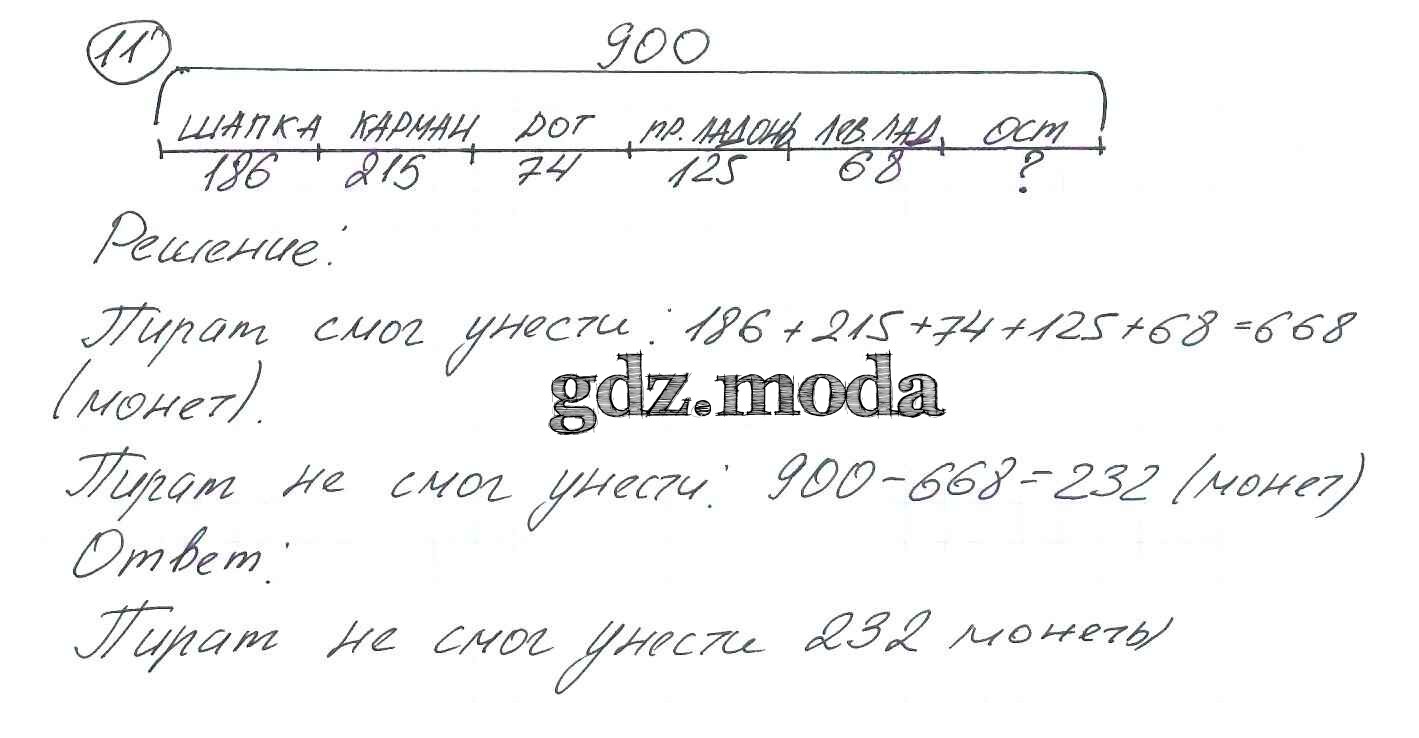 11
900
ШАПКА КАРМАН РОТ ПР. ЛАДОНЬ ЛЕВ. ЛАД ОСТ
186 215 74 125 68 ?
Решение:
Пират смог унести: 186+215+74+125+68=668
(монет).
gdz.moda
Пират не смог унести: 900-668=232 (монет)
Ответ:
Пират не смог унести 232 монеты